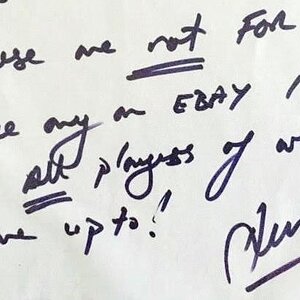 use me not FOR
any on EBAY
All players of
up to!